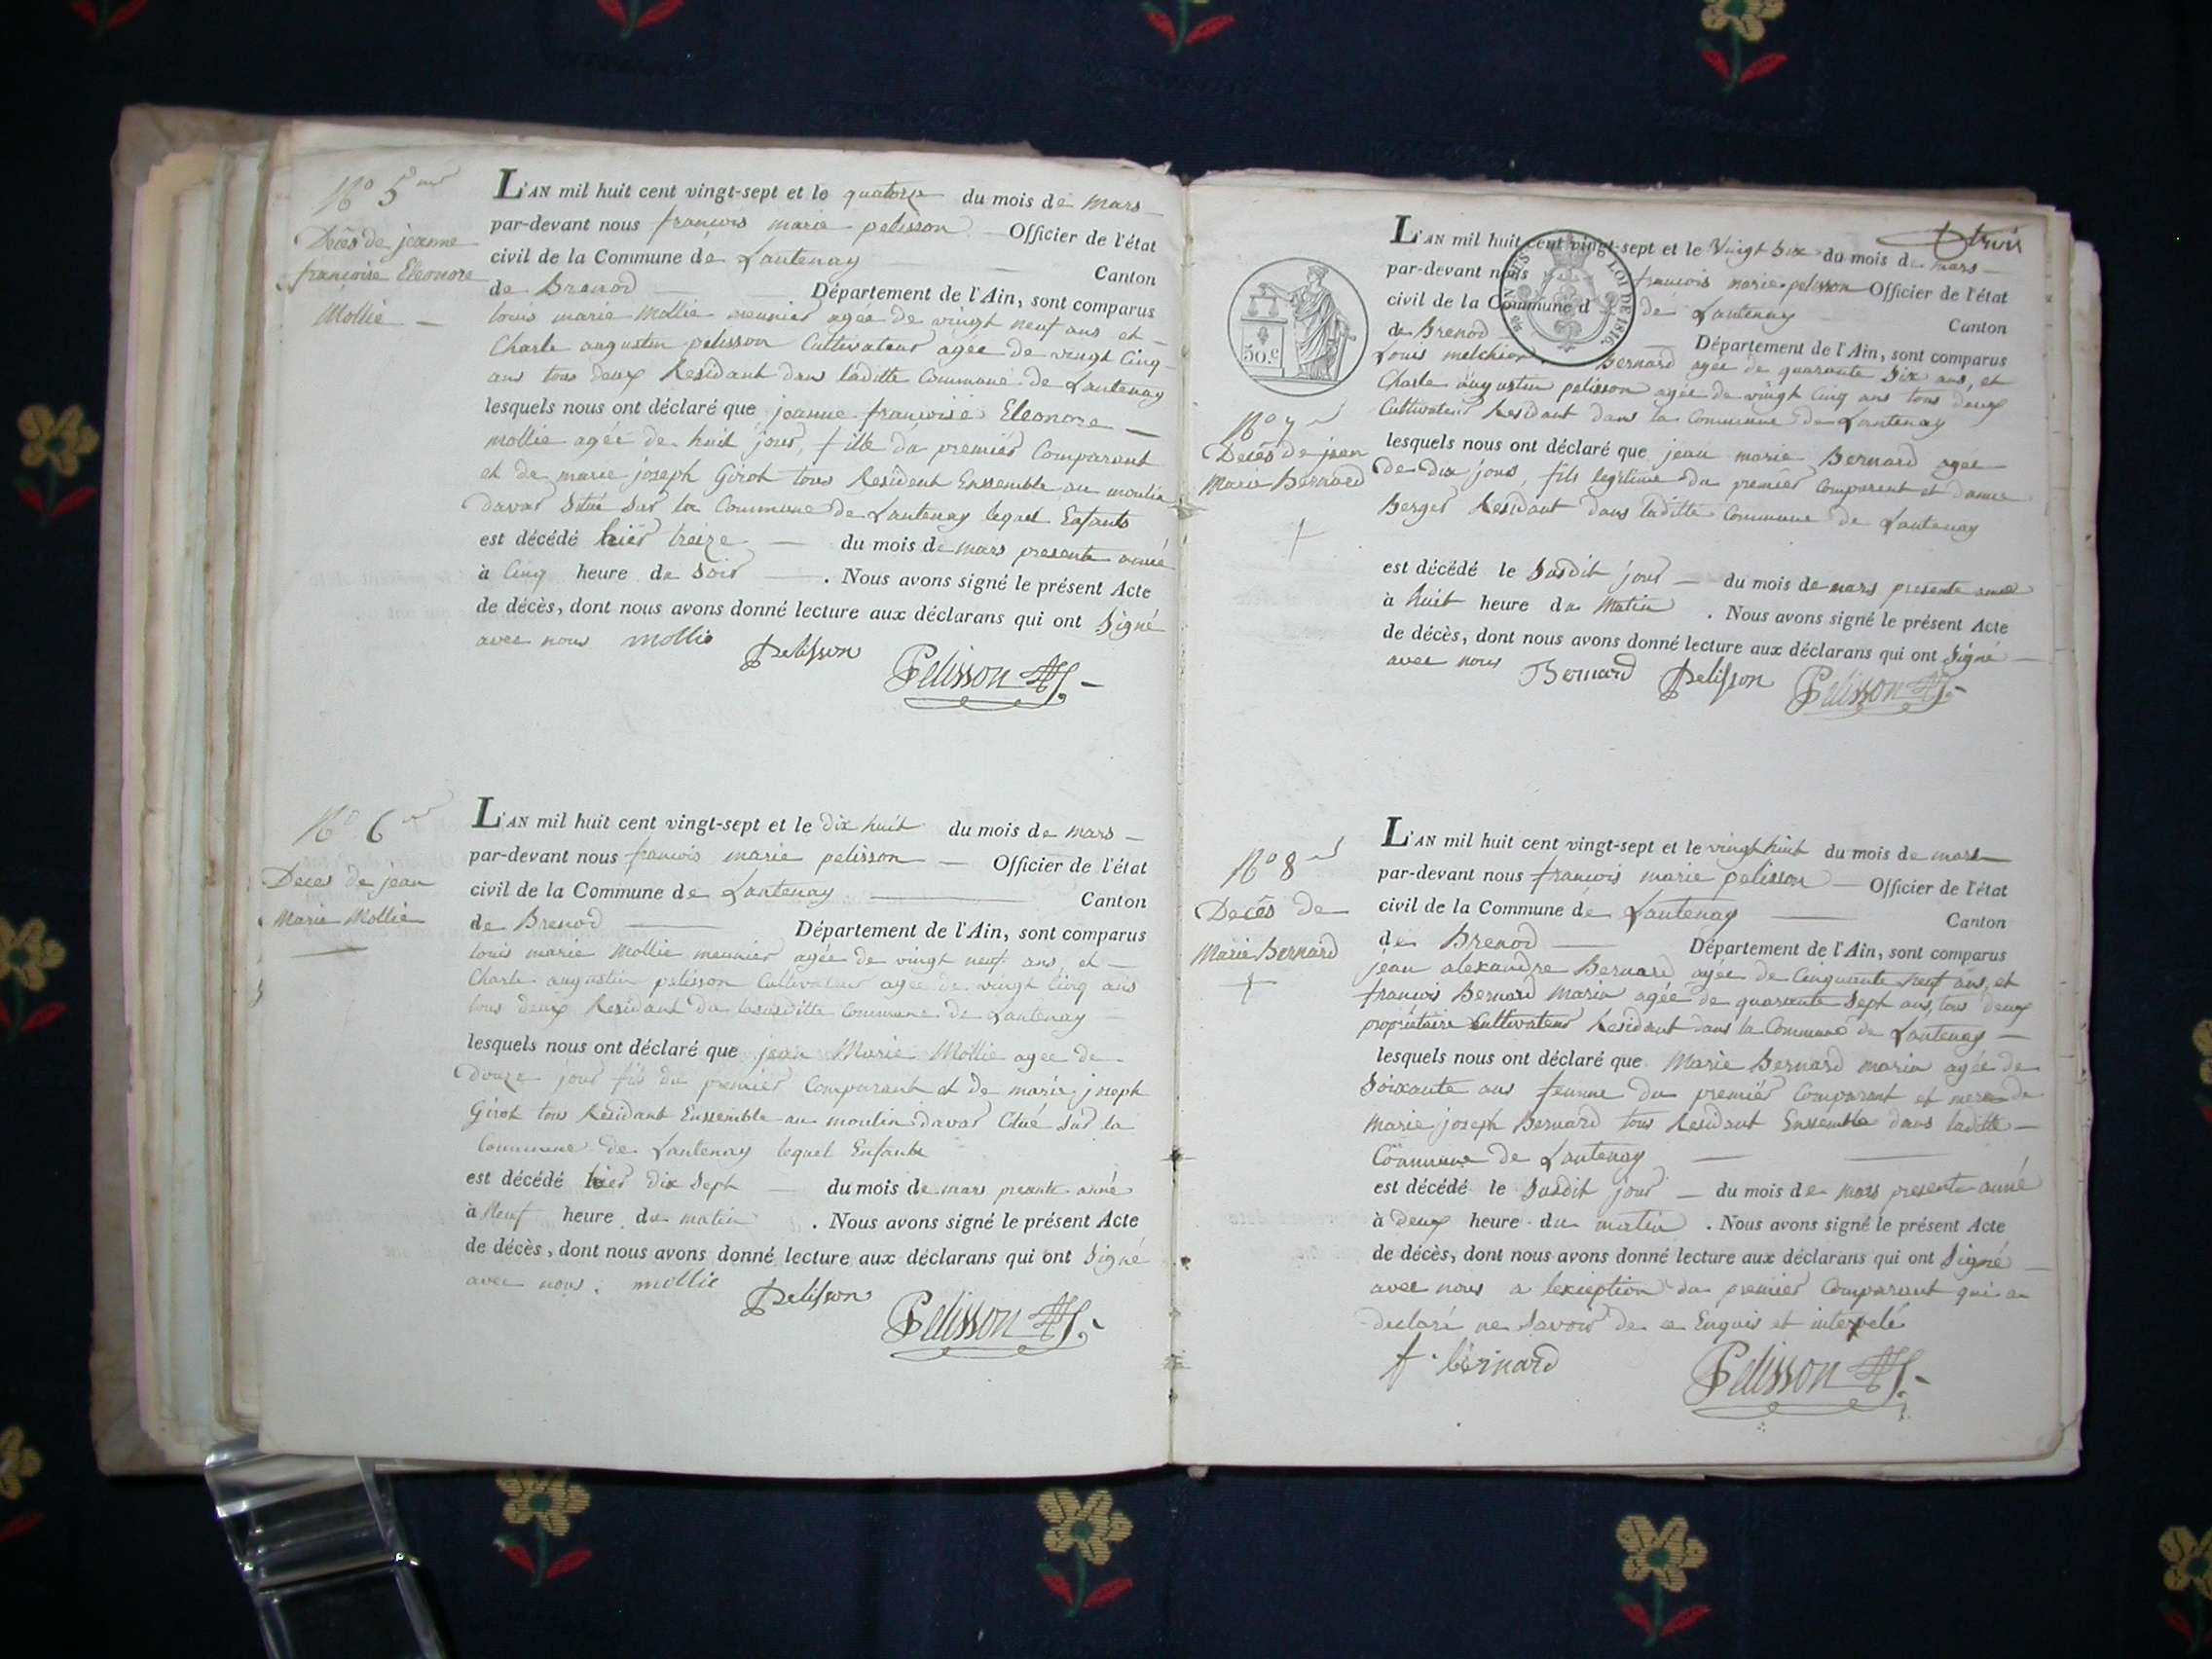 No 5
Décès de jeanne
francoise Eleonore
Mollie
L'AN mil huit cent vingt-sept et le quatorze du mois de mars
par-devant nous francois marie pelisson Officier de l'état
civil de la Commune de Lantenay Canton
de Brenod Département de l'Ain, sont comparus
louis marie Mollie meunier agée de vingt neuf ans et
Charle augustin pelisson Cultivateur agée de vingt Cinq
ans tous deux Residant dans laditte Commune de Lantenay
lesquels nous ont déclaré que jeanne francoise Eleonore
mollie agée de huit jours, fille du premier Comparant
et de marie joseph Girot tous Residant Enssemble au moulin
davar Situé Sur la Commune de Lantenay lequel Enfants
est décédé hier treize du mois de mars presente année
à Cinq heure du Soir . Nous avons signé le présent Acte
de décès, dont nous avons donné lecture aux déclarans qui ont Signé
avec nous mollie Pelisson Pelisson
No 6
Deces de jean
Marie Mollie
L'AN mil huit cent vingt-sept et le dix huit du mois de mars
par-devant nous francois marie pelisson Officier de l'état
civil de la Commune de Lantenay Canton
de Brenod Département de l'Ain, sont comparus
louis marie Mollie meunier agée de vingt neuf ans et
Charle augustin pelisson Cultivateur agée de vingt Cinq ans
tous deux Residant da lasusditte Commune de Lantenay
lesquels nous ont déclaré que jean Marie Mollie agee de
Douze jour fils du premier Comparant et de marie joseph
Girot tous Residant Enssemble au moulin davar Citué Sur la
Commune de Lantenay lequel Enfants
est décédé hier dix Sept du mois de mars presente année
à Neuf heure du matin . Nous avons signé le présent Acte
de décès, dont nous avons donné lecture aux déclarans qui ont Signé
avec nous. mollie Pelisson Pelisson
trois
50 c.
LOI DE 1816
No 7
Décès de jean
Marie Bernard
L'AN mil huit cent vingt-sept et le Vingt Six du mois de mars
par-devant nous francois marie pelisson Officier de l'état
civil de la Commune d de Lantenay Canton
de Brenod Département de l'Ain, sont comparus
Louis melchior Bernard agée de quarante Six ans, et
Charle augustin pelisson agée de vingt Cinq ans tous deux
Cultivateur Residant dans la Commune de Lantenay
lesquels nous ont déclaré que jean marie Bernard agée
de dix jours, fils legitime du premier Comparent et danne
Berger Residant dans laditte Commune de Lantenay
est décédé le Susdit jour du mois de mars presente année
à huit heure du Matin . Nous avons signé le présent Acte
de décès, dont nous avons donné lecture aux déclarans qui ont Signé
avec nous Bernard Pelisson Pelisson
No 8
Décès de
Marie Bernard
L'AN mil huit cent vingt-sept et le vingt huit du mois de mars
par-devant nous francois marie pelisson Officier de l'état
civil de la Commune de Lantenay Canton
de Brenod Département de l'Ain, sont comparus
jean alexandre Bernard agée de Cinquante neuf ans, et
francois Bernard Marin agée de quarante Sept ans, tous deux
propriétaire Cultivateur Residant dans la Commune de Lantenay
lesquels nous ont déclaré que Marie Bernard marin agée de
Soixante ans femme du premier Comparant et mere de
Marie joseph Bernard tous Residant Enssemble dans laditte
Commune de Lantenay
est décédé le Susdit jour du mois de mars presente année
à deux heure du matin . Nous avons signé le présent Acte
de décès, dont nous avons donné lecture aux déclarans qui ont Signé
avec nous a lexception du premier Comparant qui a
declaré ne Savoir de ce Enquis et interpelé
f. bernard Pelisson